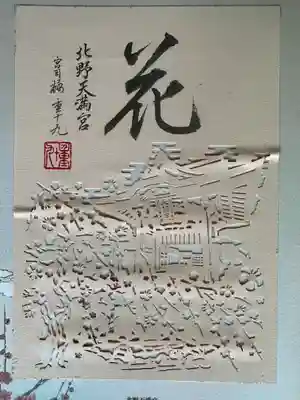 花
北野天満宮
宮司 橘 重十九